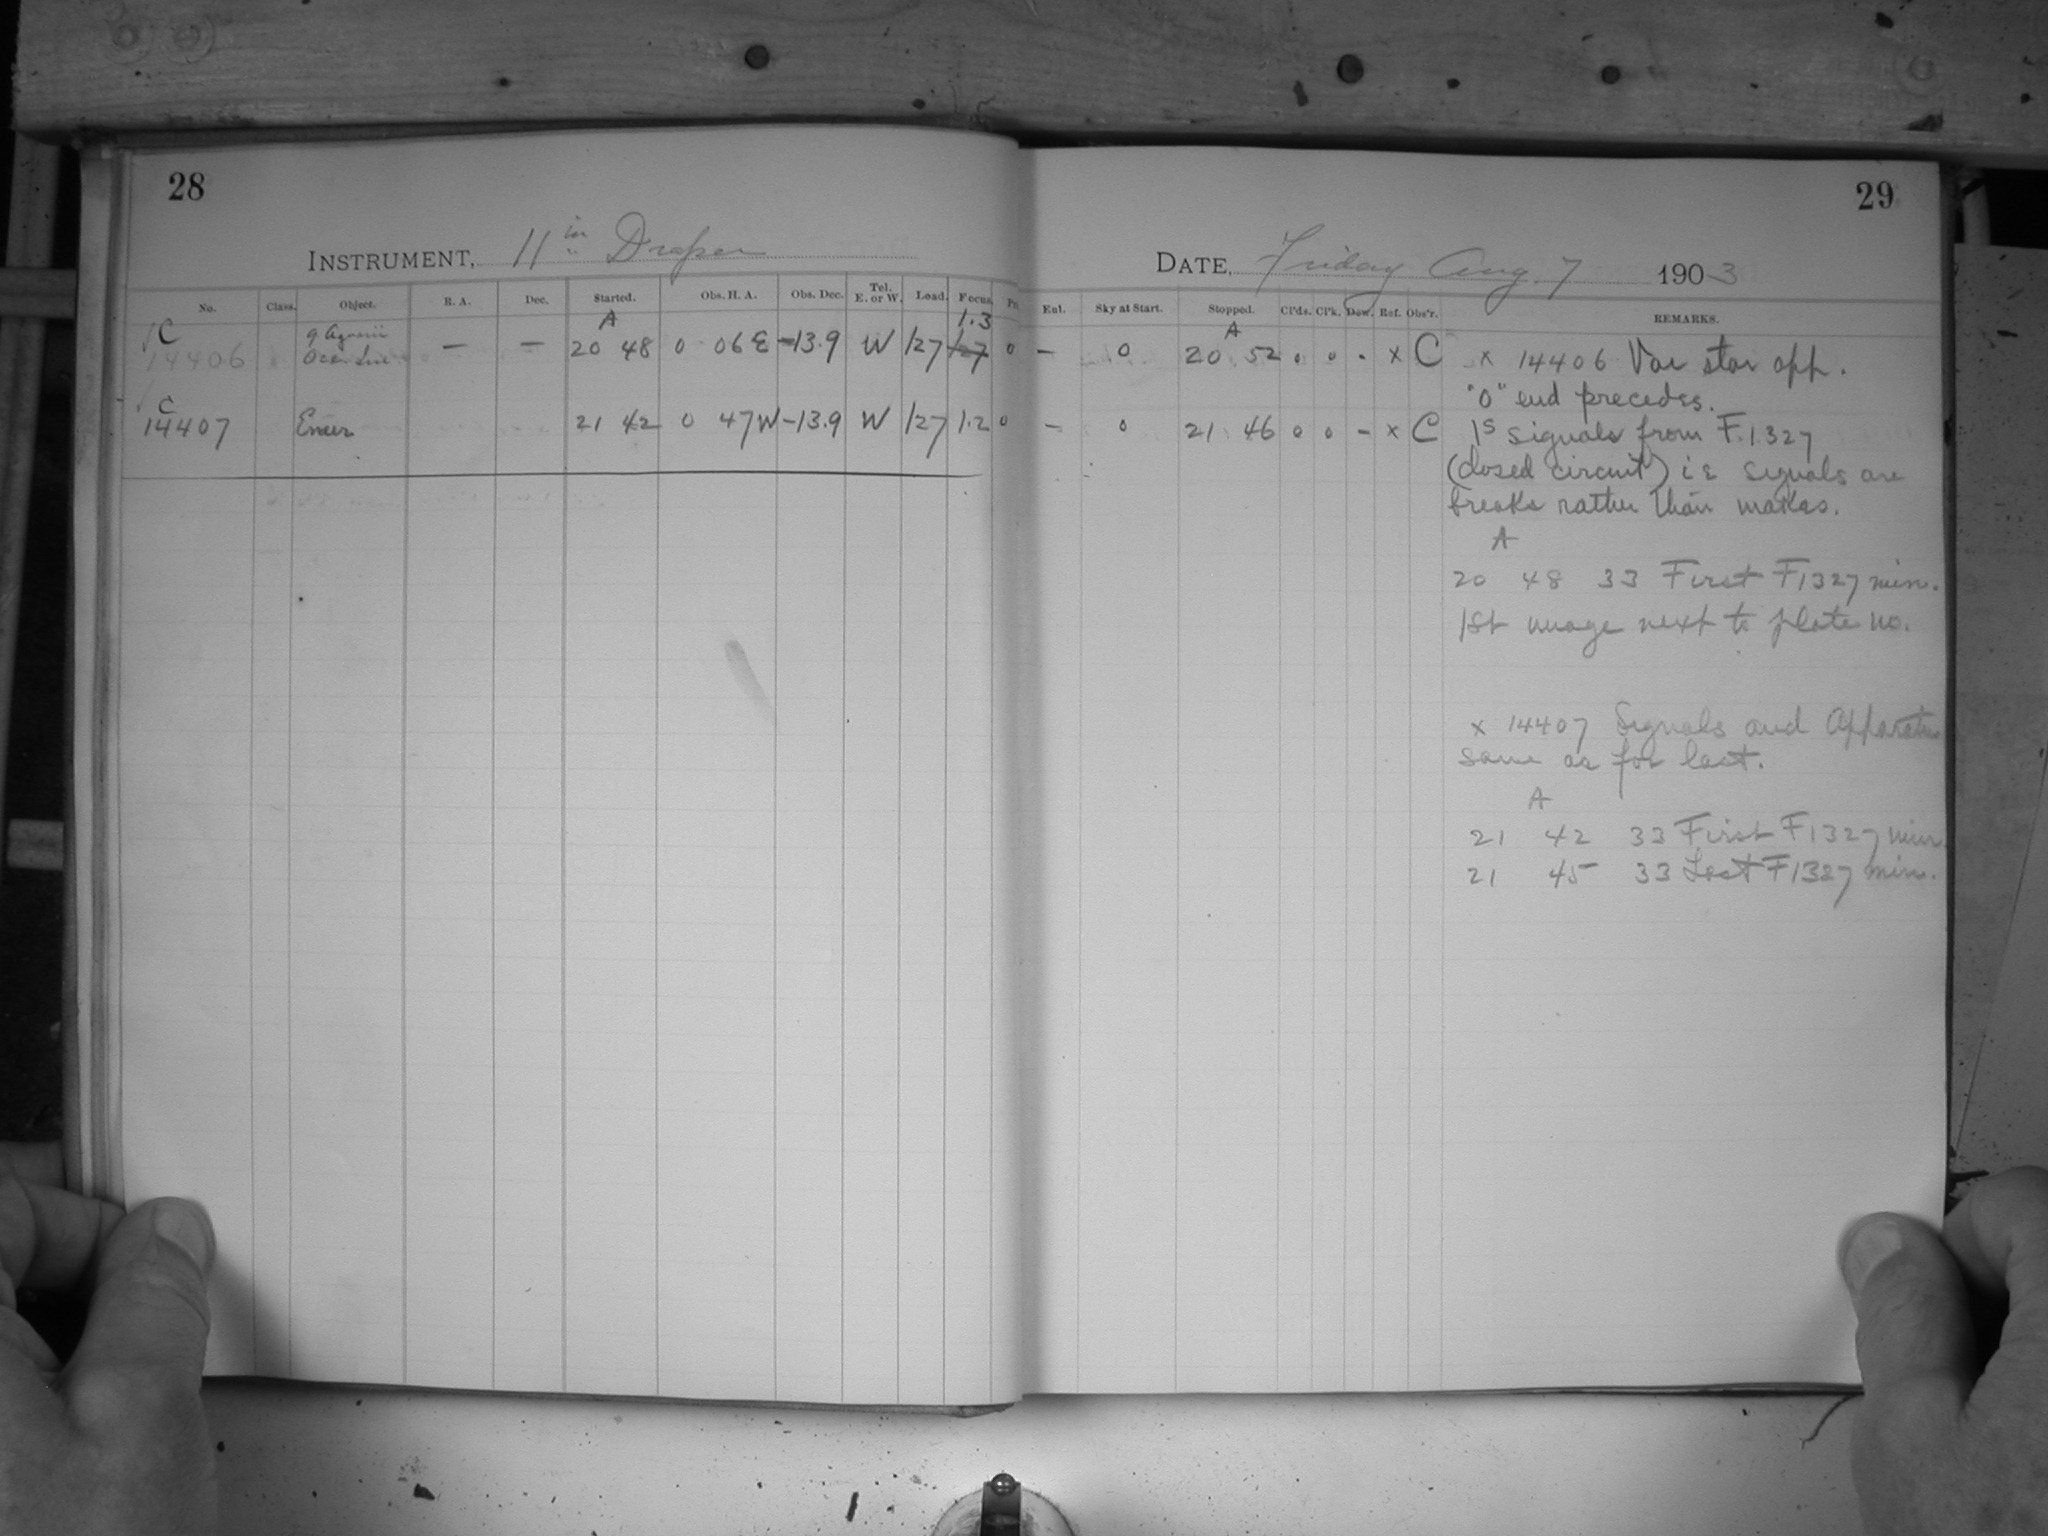 28
INSTRUMENT, 11 in Draper
No. Class. Object. R. A. Dec. Started. Obs. H. A. Obs. Dec. Tel. E. or W. Load. Focus.
C 14406 — — A 20 48 0 06 E -13.9 W 127 1.3 0
C 14407 21 42 0 47 W -13.9 W 127 1.2 0
29
DATE, Friday Aug. 7 1903
Ent. Sky at Start. Stopped. Cl'ds. Cl'k. Dew. Ref. Obs'r. REMARKS.
— 0 A 20 52 0 0 - x C x 14406 Var star app.
"O" end precedes.
— 0 21 46 0 0 - x C 1s signals from F.1327
(closed circuit) i e signals are
breaks rather than makes.
A
20 48 33 First F1327 min.
1st image next to plate no.
x 14407 Signals and Apparatus
same as for last.
A
21 42 33 First F1327 min.
21 45 33 Last F1327 min.